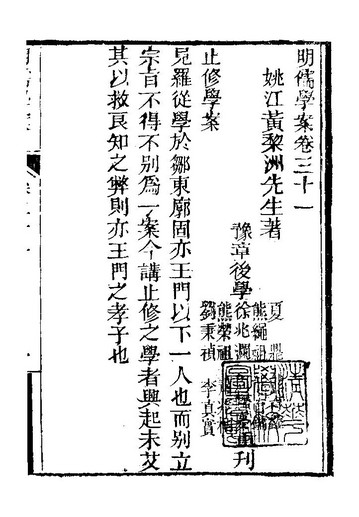 明儒學案卷三十一
姚江黃黎洲先生著
豫章後學
夏鼎
熊繩祖
徐兆瀾
熊榮祖
劉秉禎
李真實
刊
止修學案
見羅從學於鄒東廓固亦王門以下一人也而別立
宗旨不得不別爲一案今講止修之學者興起未艾
其以救良知之弊則亦王門之孝子也